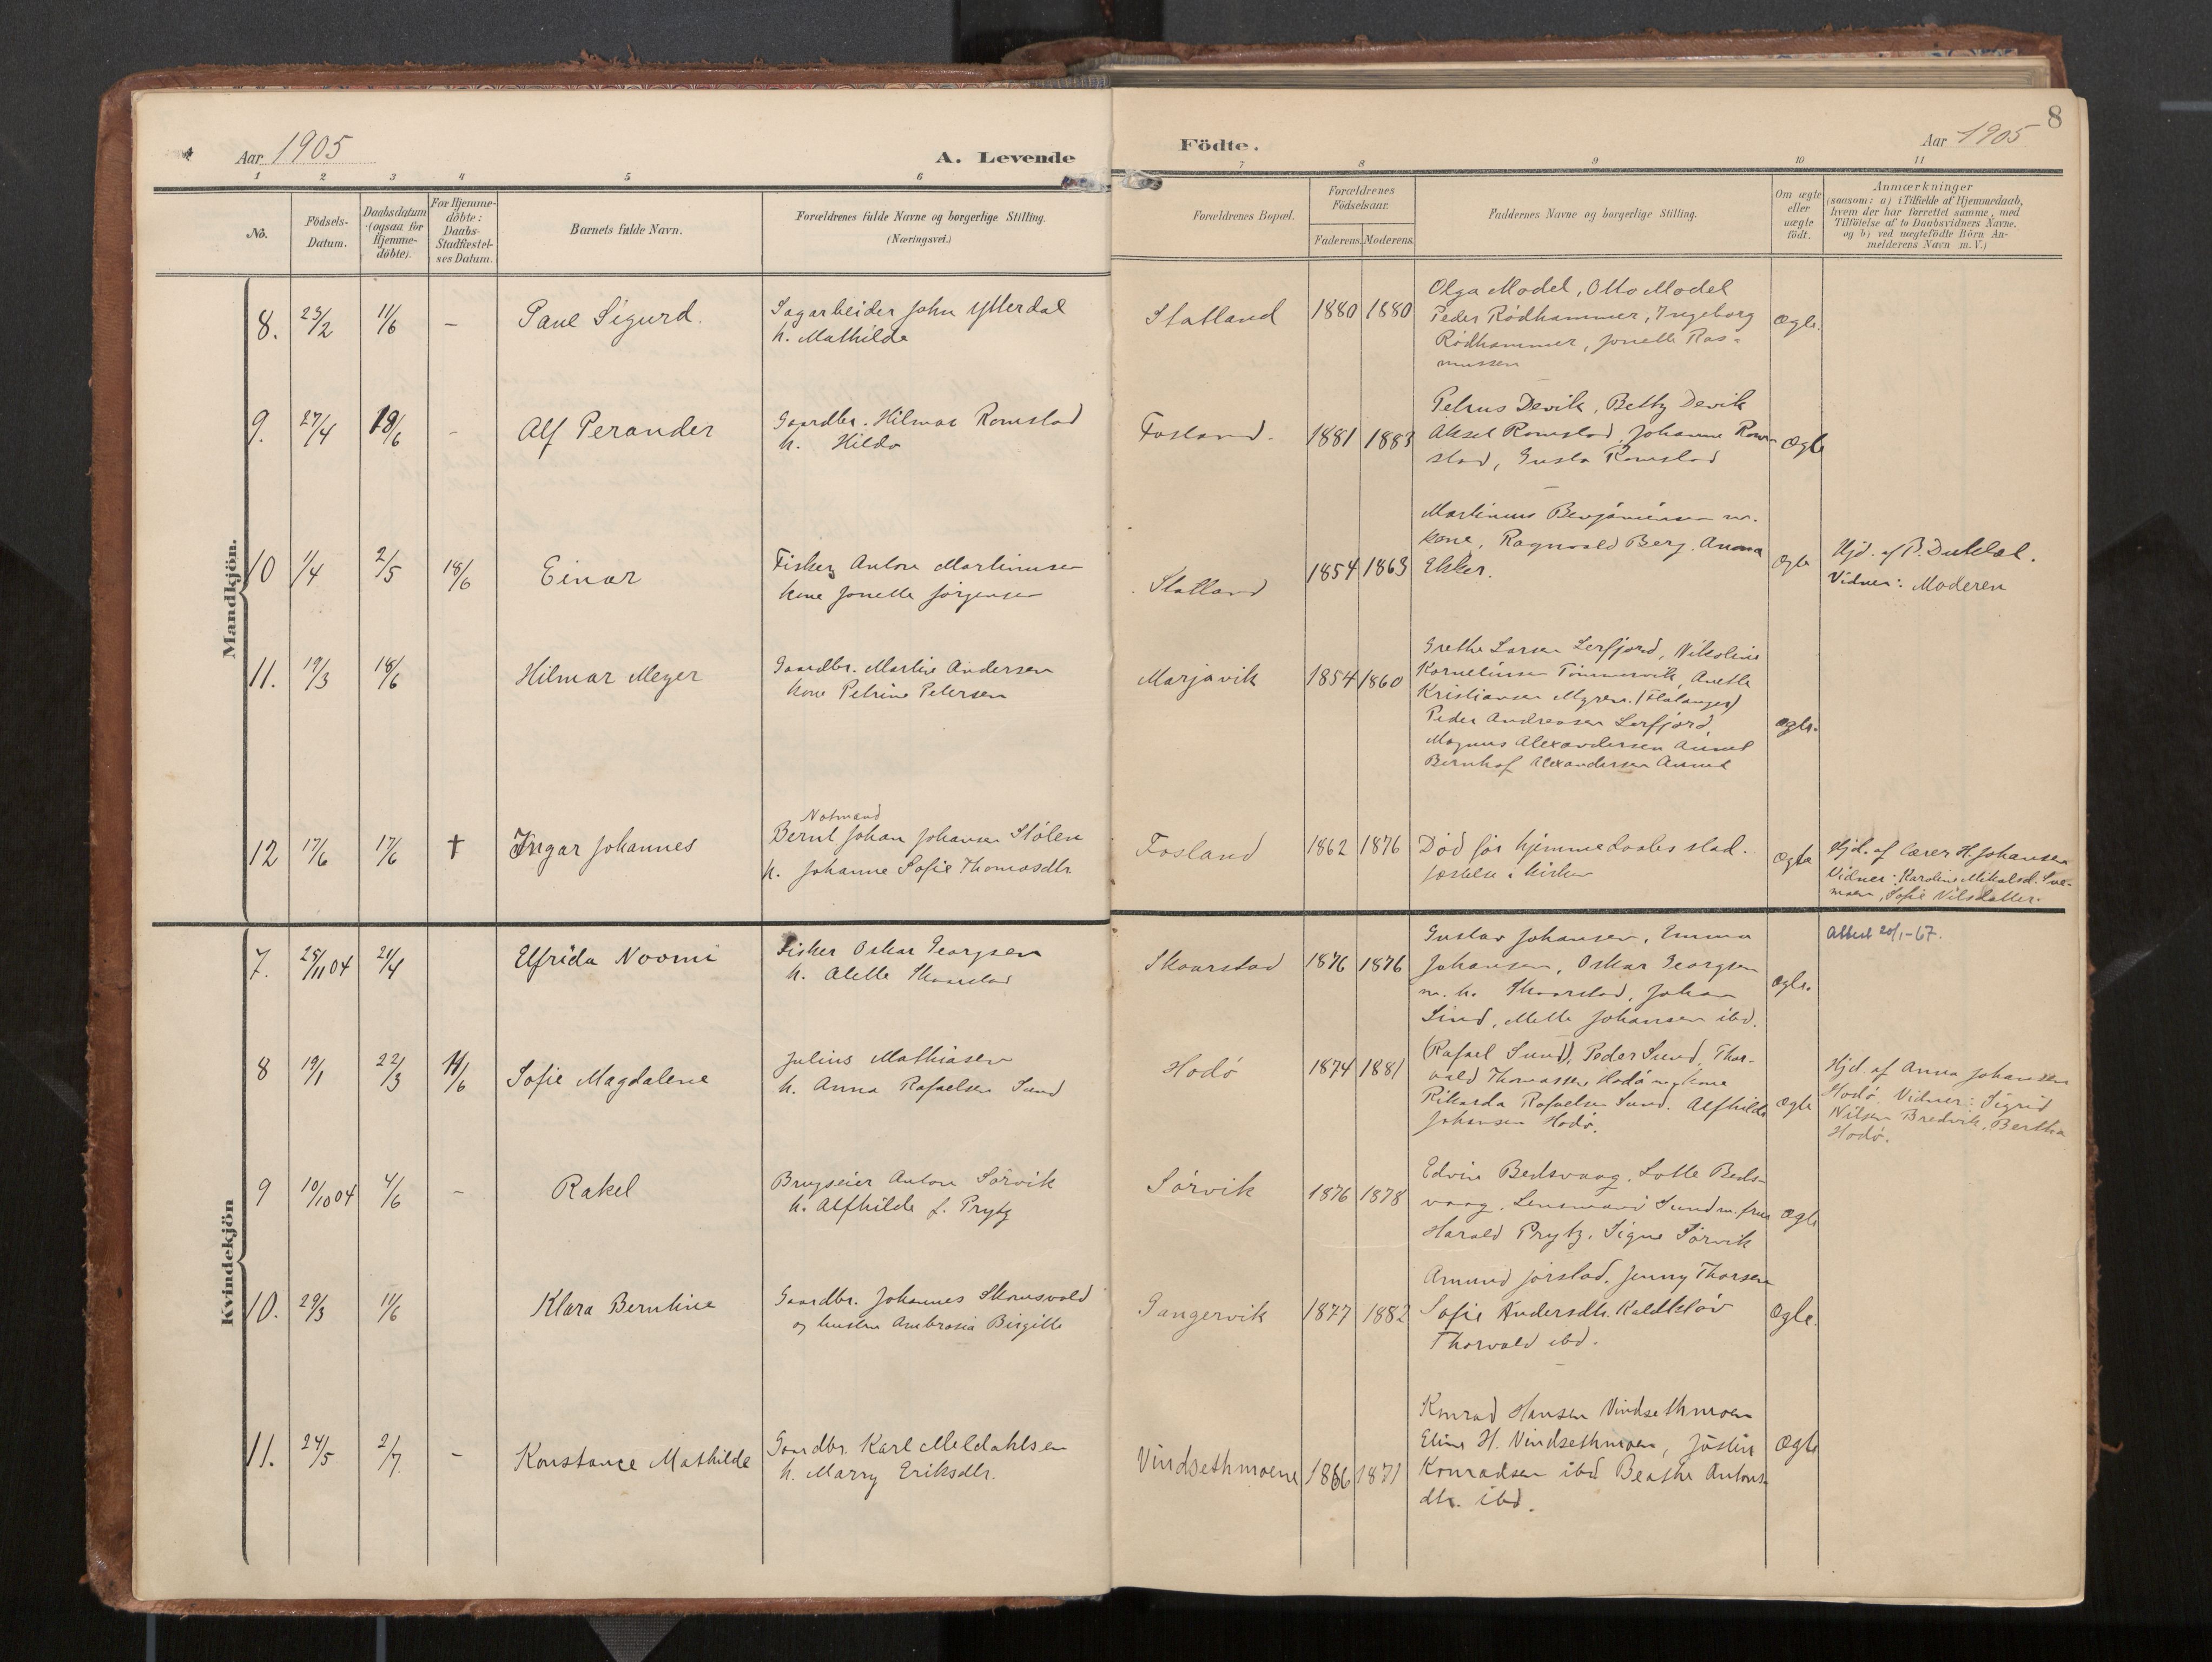 Aar 1905
A. Levende
Födte.
Aar 1905
8
1 2 3 4 5 6 7 8 9 10 11
No.
Födsels-
Datum.
Daabsdatum
(ogsaa for
Hjemme-
döbte).
For Hjemme-
döbte:
Daabs-
Stadfæstel-
ses Datum.
Barnets fulde Navn.
Forældrenes fulde Navne og borgerlige Stilling.
(Næringsvei.)
Forældrenes Bopæl.
Forældrenes
Födselsaar.
Faderens. Moderens.
Faddernes Navne og borgerlige Stilling.
Om ægte
eller
uægte
födt.
Anmærkninger
(saasom: a) i Tilfælde af Hjemmedaab,
hvem der har forrettet samme, med
Tilföielse af to Daabsvidners Navne.
og b) ved uægtefödte Börn An-
melderens Navn m. V.)
Mandkjön.
8. 23/2 11/6 – Paul Sigurd.
Sagarbeider John Ytterdal
h. Mathilde
Statland 1880 1880
Olga Model, Otto Model
Peder Rödhammer, Ingeborg
Rödhammer, Jonette Ras-
mussen
Ægte.
9. 27/4 18/6 – Alf Perander
Gaardbr. Hilmar Romstad
h. Hilda
Fosland. 1881 1883
Petrus Devik, Betty Devik
Aksel Romstad, Johanne Rom-
stad, Gusta Romstad
Ægte
10 1/4 2/5 18/6 Einar
Fisker Anton Martinusen
kone Jonette Jörgensen
Statland 1854 1863
Martinus Benjaminsen m.
kone, Ragnvald Berg. Anna
Ekker.
Ægte
Hjd. af P. Duklæt.
Vidner: Moderen
11. 19/3 18/6 Hilmar Meyer
Gaardbr. Martin Andersen
kone Petrine Petersen
Marjavik 1854 1860
Grethe Larsen Lerfjord, Nikoline
Kornelius­sen Timmervik, Anette
Kristiansen Myren. (Flatanger)
Peder Andreasen Lerfjord,
Magnus Alexandersen Aunet
Bernhof Alexandersen Aunet
Ægte.
12 17/6 17/6 † Ingar Johannes
Notmand
Bernt Johan Johansen Stölen
h. Johanne Sofie Thomasdtr
Fosland 1862 1876
Död för hjemmedaabs stad-
fæstelse i kirken
Ægte
Hjd. af Lærer H. Johansen
Vidner: Karoline Mikalsd. Sve-
moen, Sofie Nilsdatter.
Kvindekjön
7. 25/11 04 21/4 Elfrida Noomi
Fisker Oskar Georgsen
h. Alette Skaarstad
Skaarstad 1876 1876
Gustav Johansen, Emma
Johansen, Oskar Georgsen
m. h. Skaarstad, Johan
Sind, Mette Johansen ibd.
Ægte.
Attest 20/1-67.
8 19/1 22/3 11/6 Sofie Magdalene
Julius Mathiasen
h. Anna Rafaelsen Sund
Hodö 1874 1881
(Rafael Sund), Peder Sund, Thor-
vald Thomassen Hodö m/kone
Rikarda Rafaelsen Sund. Alfhilde
Johansen Hodö.
Ægte
Hjd. af Anna Johansen
Hodö. Vidner: Sigrid
Nilsen Bredvik, Bertha
Hodö.
9 10/10 04 4/6 – Rakel
Brugseier Anton Sörvik
h. Alfhilde f. Prytz
Sörvik 1876 1878
Edvin Bedsvaag, Lotte Beds-
vaag, Lensmand Sund m. frue
Harald Prytz, Signe Sörvik
Ægte
10. 29/3 11/6 Klara Berntine
Gaardbr. Johannes Skomsvold
og hustru Ambrosia Birgitte
Gangervik 1877 1882
Amund Jörstad, Jenny Thorsen
Sofie Andersdtr. Kaldkløv
Thorvald ibd.
Ægte.
11. 24/5 2/7 – Konstance Mathilde
Gaardbr. Karl Meldahlsen
h. Marry Eriksdtr.
Vindsethmoene 1866 1871
Konrad Hansen Vindsethmoen
Eline H. Vindsethmoen, Jöstin
Konradsen ibd Beathe Antons-
dtr. ibd.
Ægte